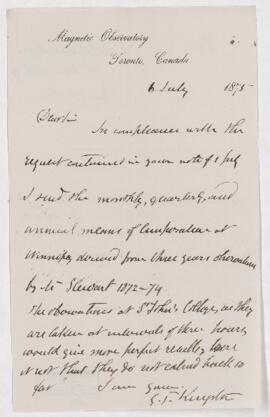 Magnetic Observatory
Toronto, Canada
6 July 1875
Dear Sir
In compliance with the
request contained in your note of 1 July
I send the monthly, quarterly, and
annual means of temperature at
Winnipeg derived from three years observations
by Mr Stewart 1872-74.
The observations at St John's College, as they
are taken at intervals of three hours,
would give more perfect results, were
it not that they do not extend back so
far I am yours
G. T. Kingston